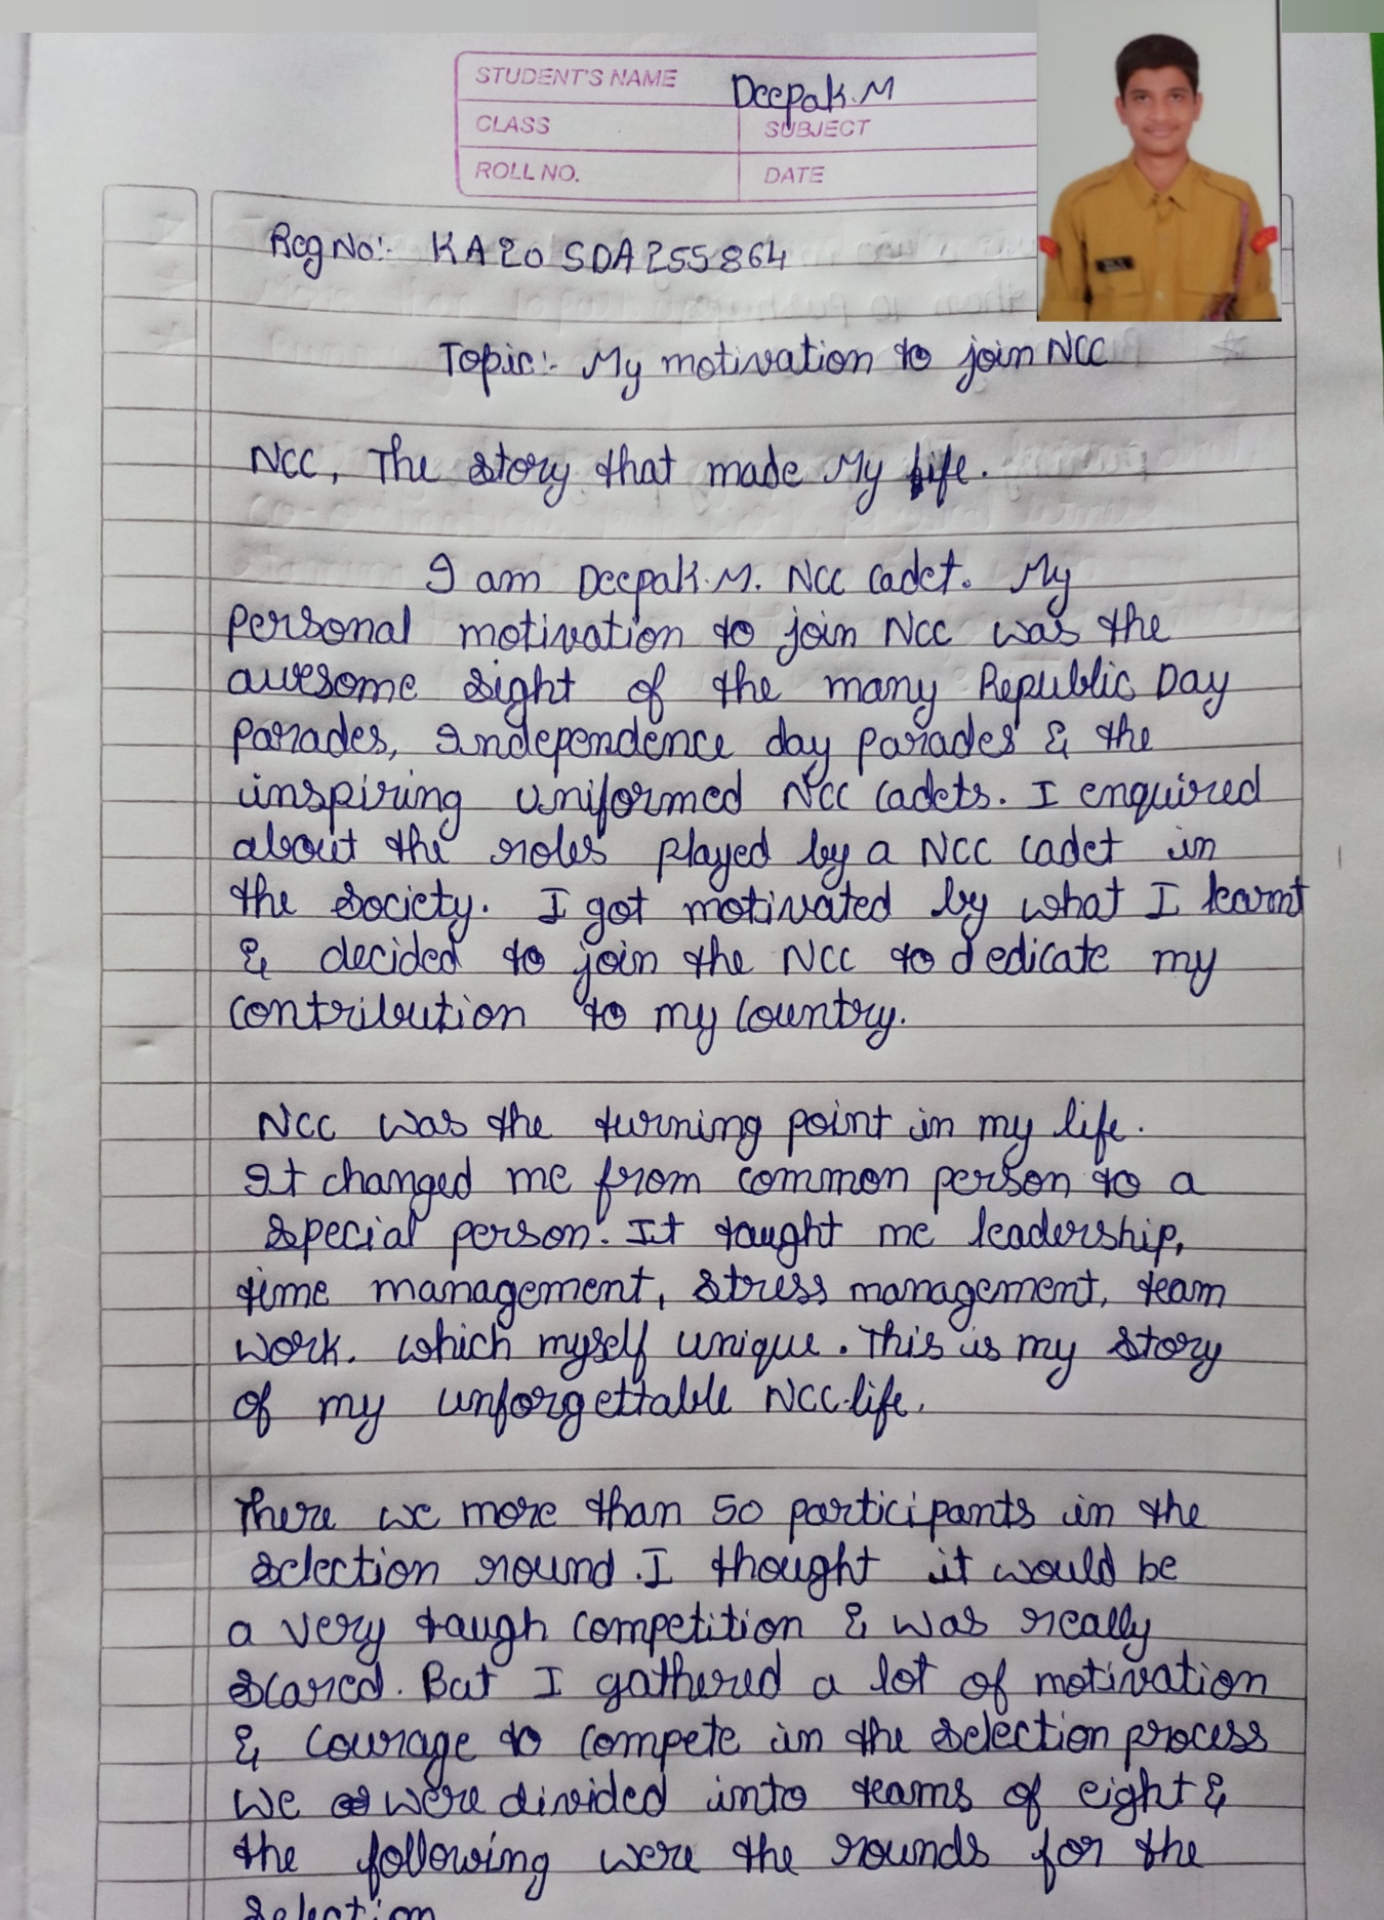 STUDENT'S NAME Deepak.M
CLASS SUBJECT
ROLL NO. DATE
Reg No:- KA20 SDA255864
Topic:- My motivation to join NCC
NCC, The story that made My life.
I am Deepak.M. NCC Cadet. My
personal motivation to join NCC was the
awesome sight of the many Republic Day
parades, Independence day parades & the
inspiring uniformed NCC Cadets. I enquired
about the roles played by a NCC cadet in
the society. I got motivated by what I learnt
& decided to join the NCC to dedicate my
contribution to my country.
NCC was the turning point in my life.
It changed me from common person to a
special person. It taught me leadership,
time management, stress management, team
work. which myself unique. This is my story
of my unforgettable NCC life.
There we more than 50 participants in the
selection round. I thought it would be
a very taugh competition & was really
scared. But I gathered a lot of motivation
& courage to compete in the selection process
we were divided into teams of eight &
the following were the rounds for the
selection